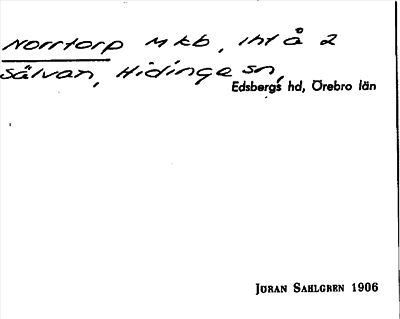 Norrtorp Mkb, Iht å 2
Sälvan, Hidinge sn,
Edsbergs hd, Örebro län
Jöran Sahlgren 1906